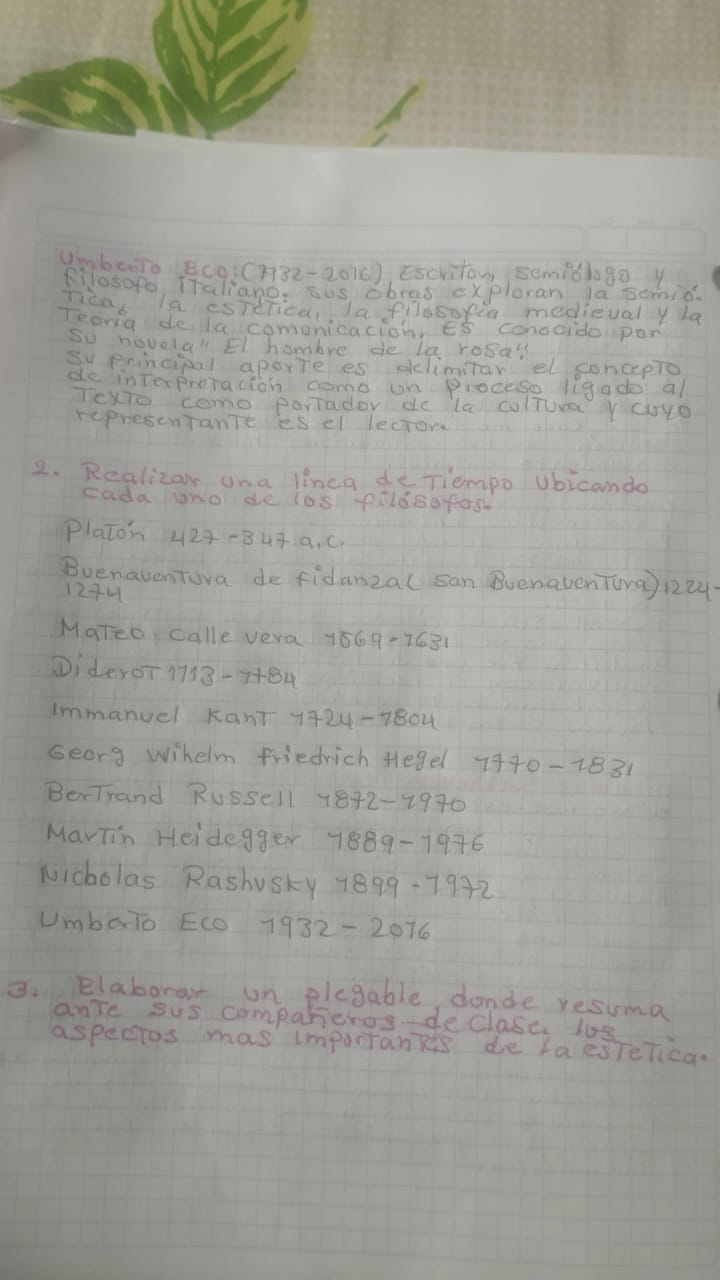 Umberto Eco: (1932-2016) Escritor, semiólogo y
filosofo italiano. sus obras exploran la semió-
Tica, la estética, la filosofía medieval y la
Teoría de la comunicación, Es conocido por
su novela "El hombre de la rosa".
su principal aporte es delimitar el concepto
de interpretación como un proceso ligado al
Texto como portador de la cultura y cuyo
representante es el lector.
2. Realizar una línea de Tiempo ubicando
cada uno de los filósofos.
Platón 427-347 a.c.
Buenaventura de fidanza( san Buenaventura) 1224-
1274
Mateo calle vera 1569-1631
Diderot 1713-1784
Immanuel Kant 1724-1804
Georg Wihelm friedrich Hegel 1770-1831
Bertrand Russell 1872-1970
Martín Heidegger 1889-1976
Nicholas Rashvsky 1899-1972
Umberto Eco 1932-2016
3. Elaborar un plegable, donde resuma
ante sus compañeros de clase, los
aspectos mas importantes de la estetica.